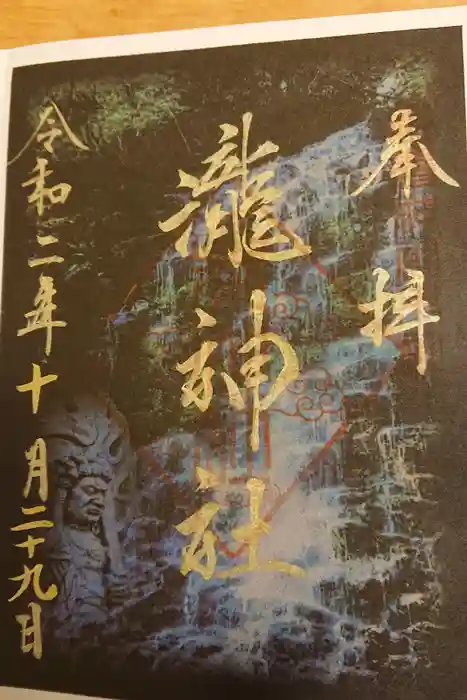 奉拝
瀧神社
令和二年十月二十九日